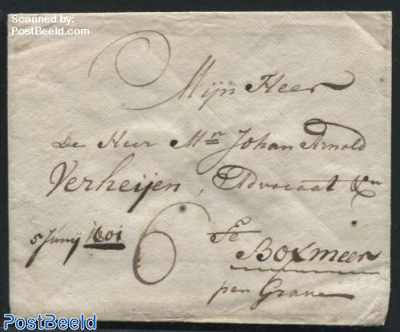 Scanned by
PostBeeld.com
Mijn Heer
De Heer Mr Johan Arnold
Verheijen, Advocaat &cn
5 Junij 1801
6
Te
Boxmeer
per Grave
PostBeeld.com